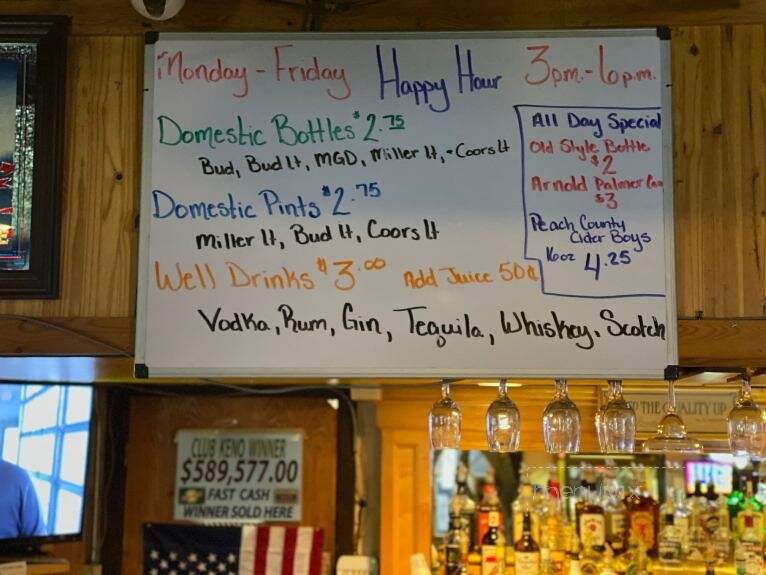 Monday - Friday Happy Hour 3pm. - 6p.m.
Domestic Bottles $2.75
Bud, Bud Lt, MGD, Miller Lt, - Coors Lt
Domestic Pints $2.75
Miller Lt, Bud Lt, Coors Lt
Well Drinks $3.00 Add Juice 50¢
Vodka, Rum, Gin, Tequila, Whiskey, Scotch
All Day Special
Old Style Bottle
$2
Arnold Palmer Can
$3
Peach County
Cider Boys
16oz 4.25
CLUB KENO WINNER
$589,577.00
FAST CASH
WINNER SOLD HERE
THE QUALITY UP